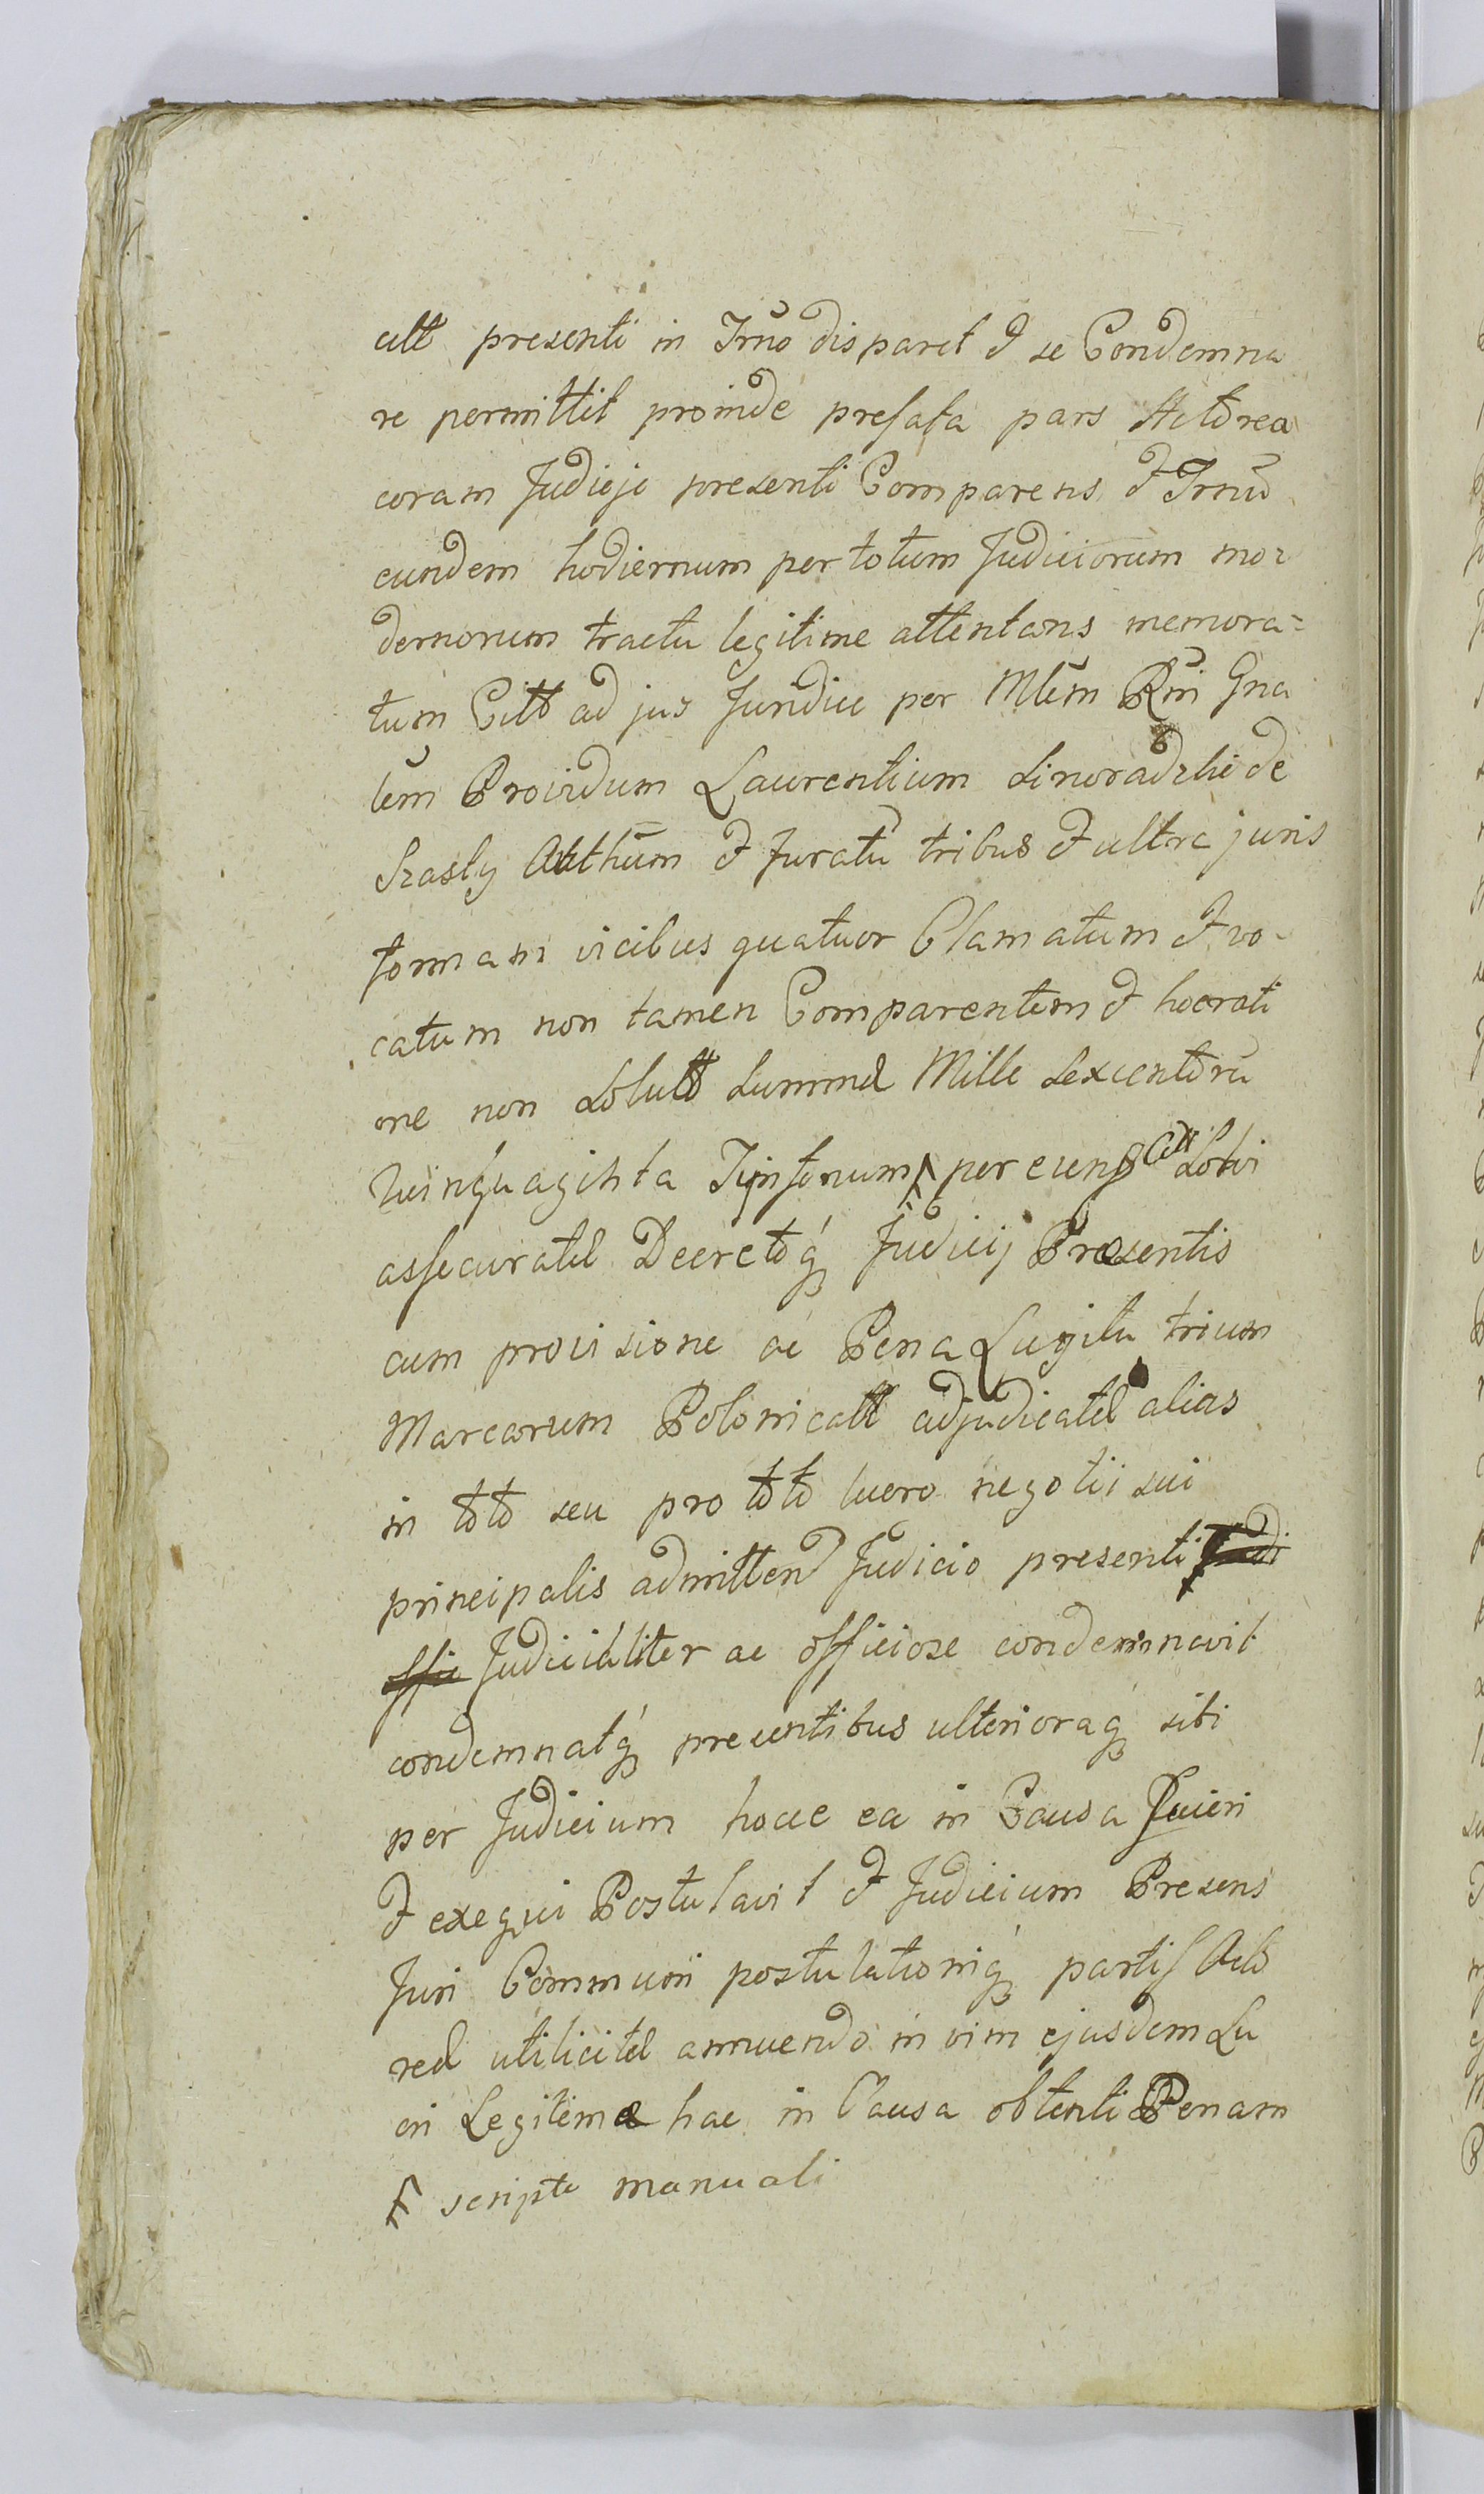 att presenti in Trno disparet & se Condemna
re permittit proinde prefata pars Actorea
coram Judicje presenti Comparens & Trnū
eundem hodiernum per totum Judiciorum mo-
dernorum tractu legitime attentans memora=
tum Citt ad jus Juridice per Mlem Rni Gna
lem Providum Laurentium Sinoradzki de
Szasty Autthūm & Juratū tribus & ultra juris
formam vicibus quatuor Clamatum & vo-
catum non tamen Comparentem & hocrati
one non Solutt Summæ Mille Sexcentorū
Quinquaginta Tynfonum per eund Citt Solvi
assecuratæ Decretoq Judicij Presentis
cum provisione ac Pena Lugitu trium
Marcarum Polonicatt adjudicatæ alias
in toto seu pro toto lucro negotii sui
principalis admitten Judicio presenti Judi
offic Judicialiter ac officiose condemnavit
condemnatq presentibus ulterioraq sibi
per Judicium hocce ea in Causa fieri
& exequi Postulavit & Judicium Presens
Juri Communi postulationiq partis Acto
reæ utilicitæ annuendo in vim ejusdem Lu
cri Legitimæ hac in Causa obtenti Penam
scripto manuali